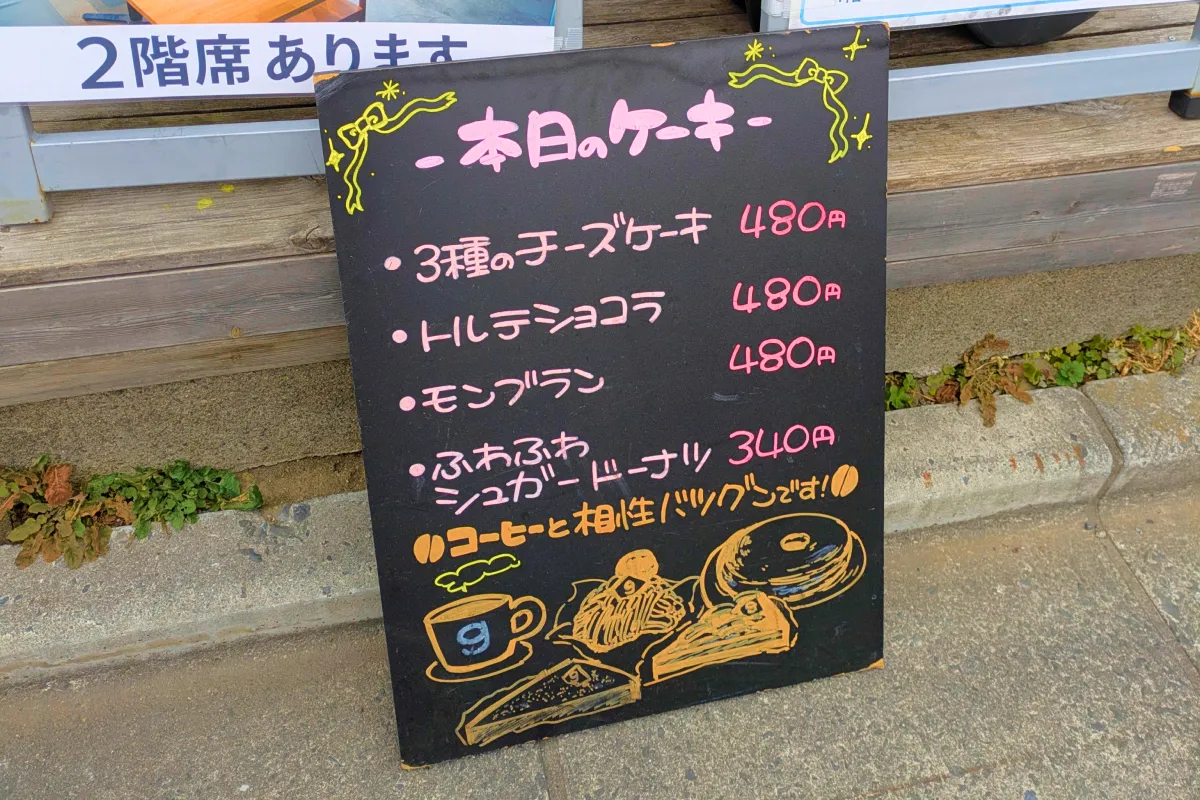 2階席 あります
- 本日のケーキ -
• 3種のチーズケーキ 480円
• トルテショコラ 480円
• モンブラン 480円
• ふわふわ
シュガードーナツ 340円
コーヒーと相性バツグンです!
g